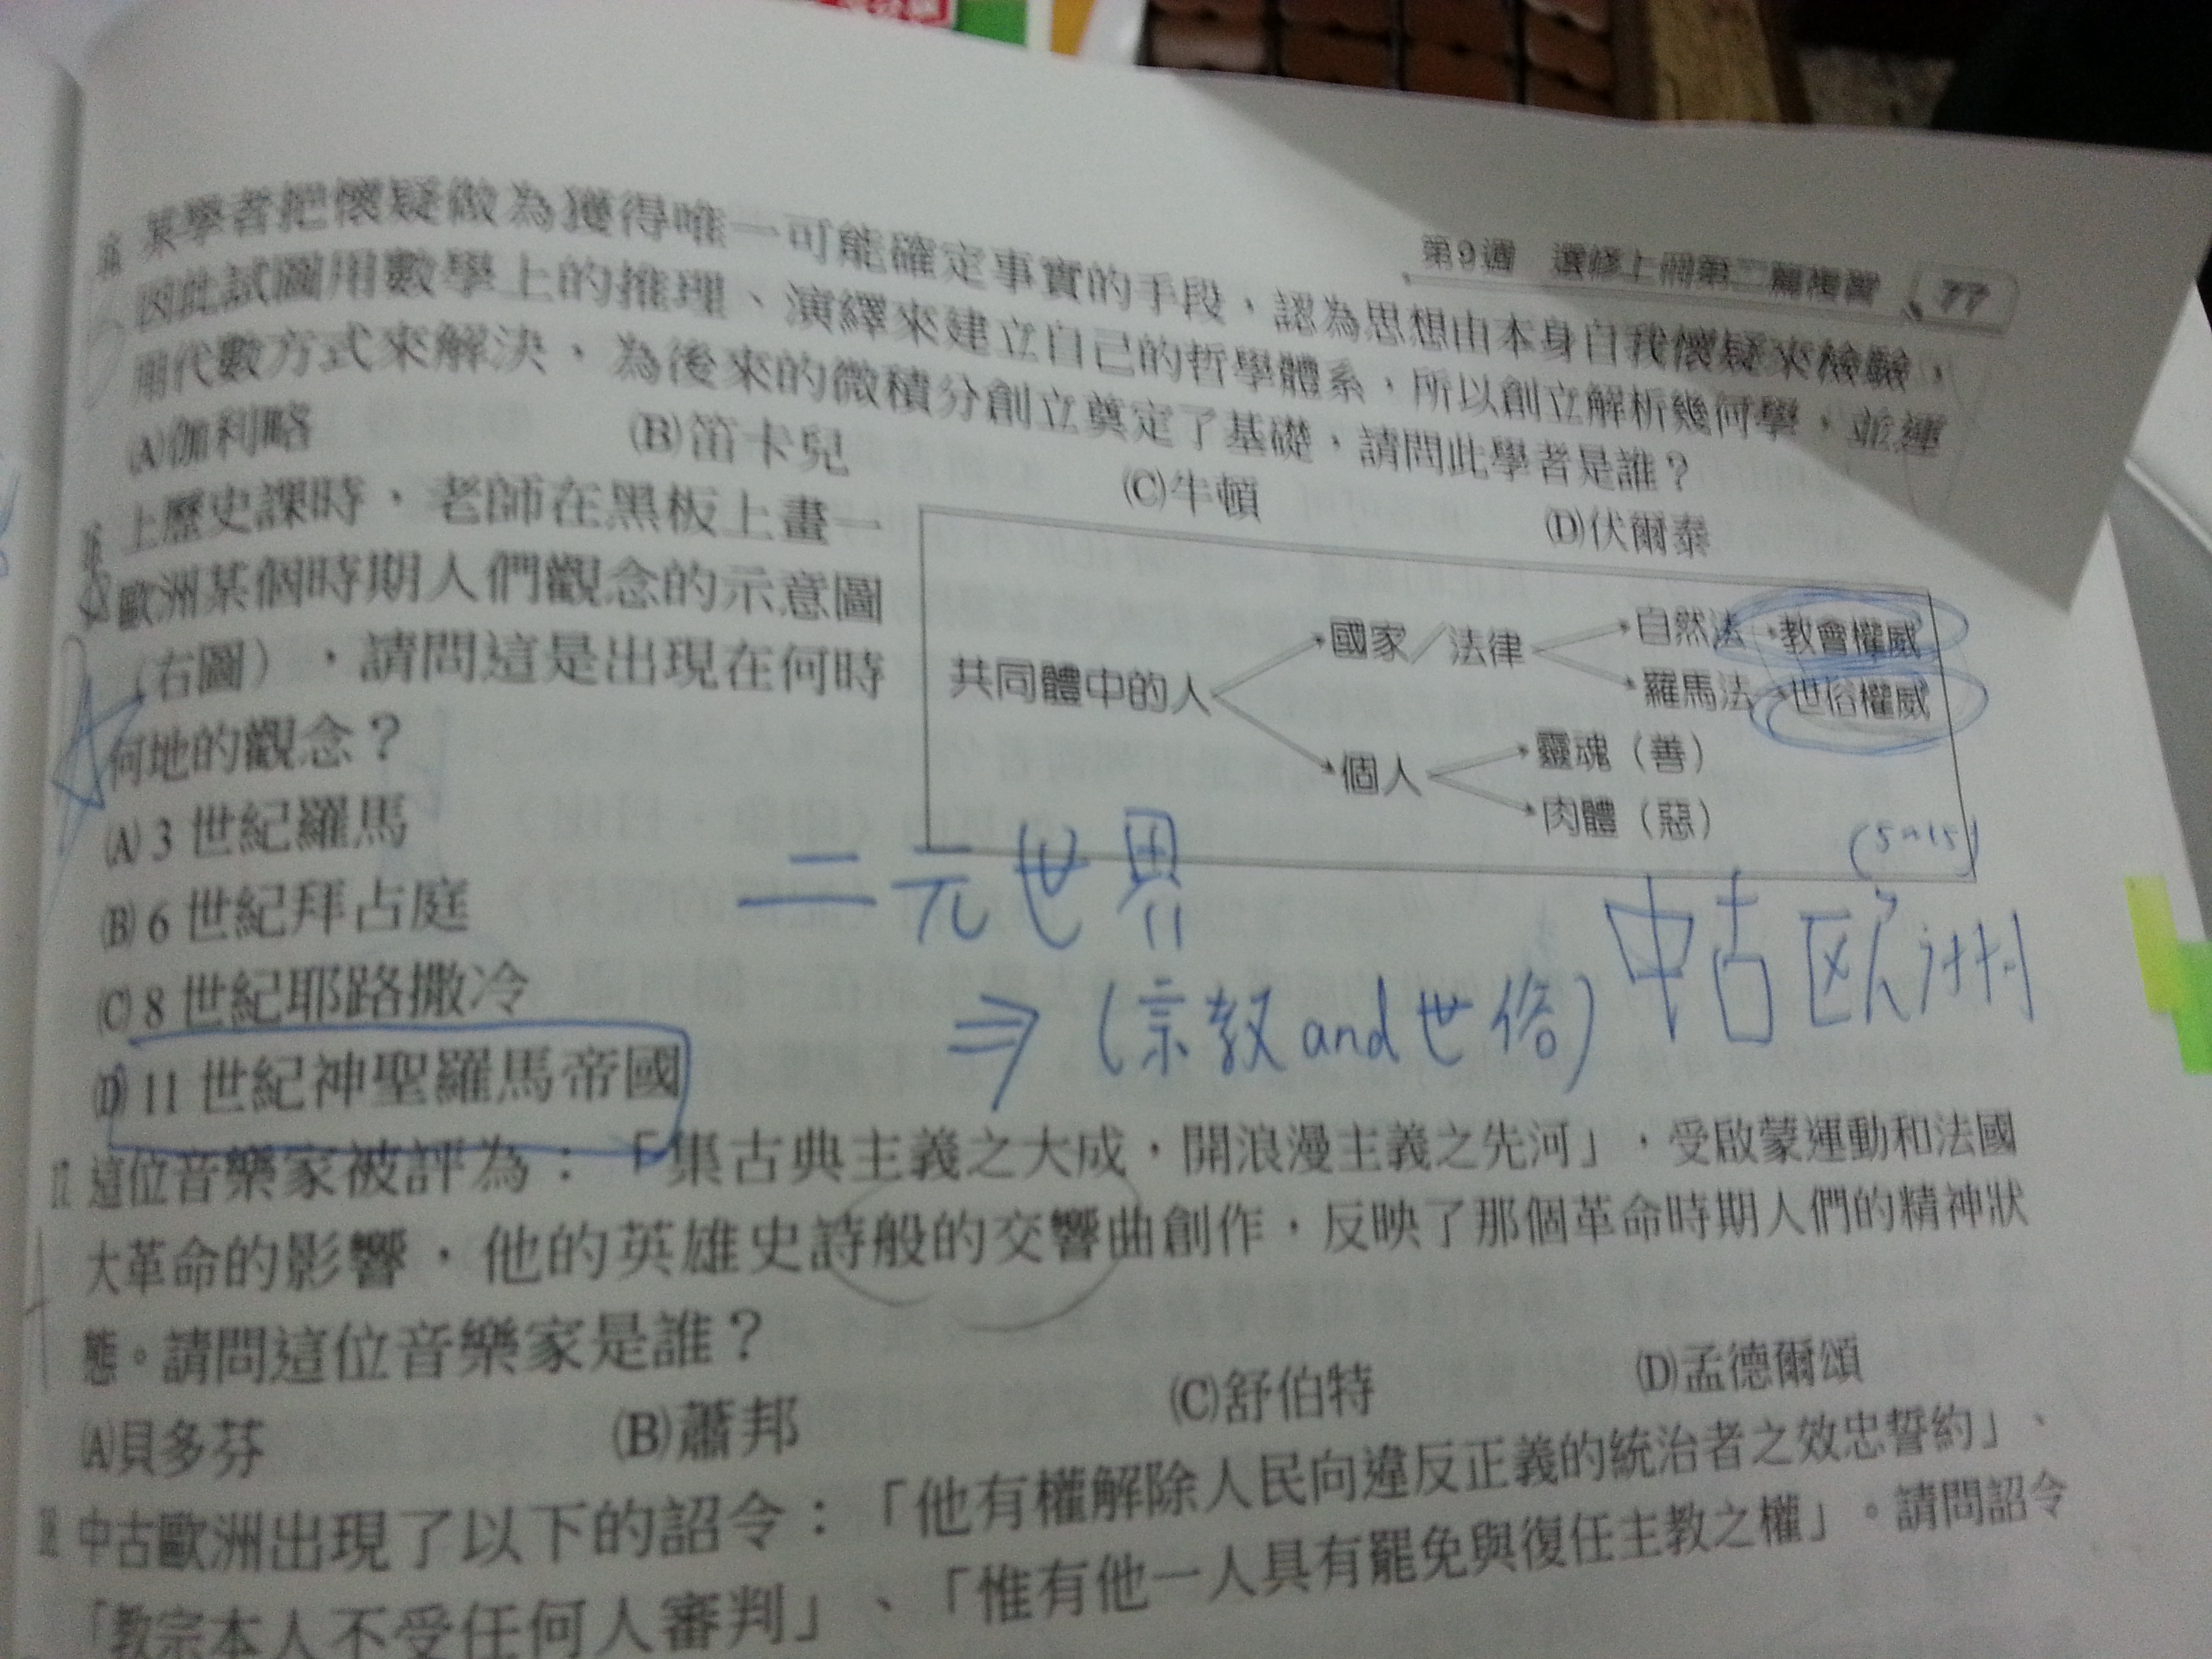 第9週 選修上冊第二篇複習 77
某學者把懷疑做為獲得唯一可能確定事實的手段，認為思想由本身自我懷疑來檢驗，
因此試圖用數學上的推理、演繹來建立自己的哲學體系，所以創立解析幾何學，並運
用代數方式來解決，為後來的微積分創立奠定了基礎，請問此學者是誰？
(A)伽利略 (B)笛卡兒 (C)牛頓 (D)伏爾泰
上歷史課時，老師在黑板上畫一
歐洲某個時期人們觀念的示意圖
（右圖），請問這是出現在何時
何地的觀念？
(A) 3 世紀羅馬
(B) 6 世紀拜占庭
(C) 8 世紀耶路撒冷
(D) 11 世紀神聖羅馬帝國
共同體中的人
國家／法律
自然法 教會權威
羅馬法 世俗權威
個人
靈魂（善）
肉體（惡）
二元世界
⇒ (宗教and世俗)
(5~15)
中古欧洲
17. 這位音樂家被評為：「集古典主義之大成，開浪漫主義之先河」，受啟蒙運動和法國
大革命的影響，他的英雄史詩般的交響曲創作，反映了那個革命時期人們的精神狀
態。請問這位音樂家是誰？
(A)貝多芬 (B)蕭邦 (C)舒伯特 (D)孟德爾頌
中古歐洲出現了以下的詔令：「他有權解除人民向違反正義的統治者之效忠誓約」、
「教宗本人不受任何人審判」、「惟有他一人具有罷免與復任主教之權」。請問詔令